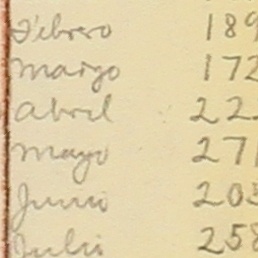 Febrero 189
Março 172
Abril 222
Mayo 271
Junio 205
Julio 258